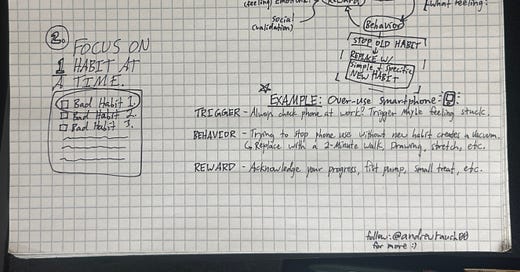 (feeling) Emotional
Social
(validation)
Reward
Behavior
[What feeling:
STOP OLD HABIT
REPLACE W/
Simple & Specific
NEW HABIT
2. FOCUS ON
1 HABIT AT
A TIME.
Bad Habit 1.
Bad Habit 2.
Bad Habit 3.
EXAMPLE: Over-use smartphone:
TRIGGER - Always check phone at work? Trigger: Maybe feeling stuck.
BEHAVIOR - Trying to stop phone use without new habit creates a vacuum.
Replace with a 2-Minute walk, Drawing, stretch, etc.
REWARD - Acknowledge your progress, fist pump, small treat, etc.
follow: @andrewrauch00
for more :)